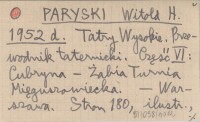 PARYSKI Witold H.
1952 d. Tatry Wysokie. Prze-
wodnik taternicki. Część VI:
Cubryna – Żabia Turnia
Mięguszowiecka. – War-
szawa. Stron 180, ilustr.,